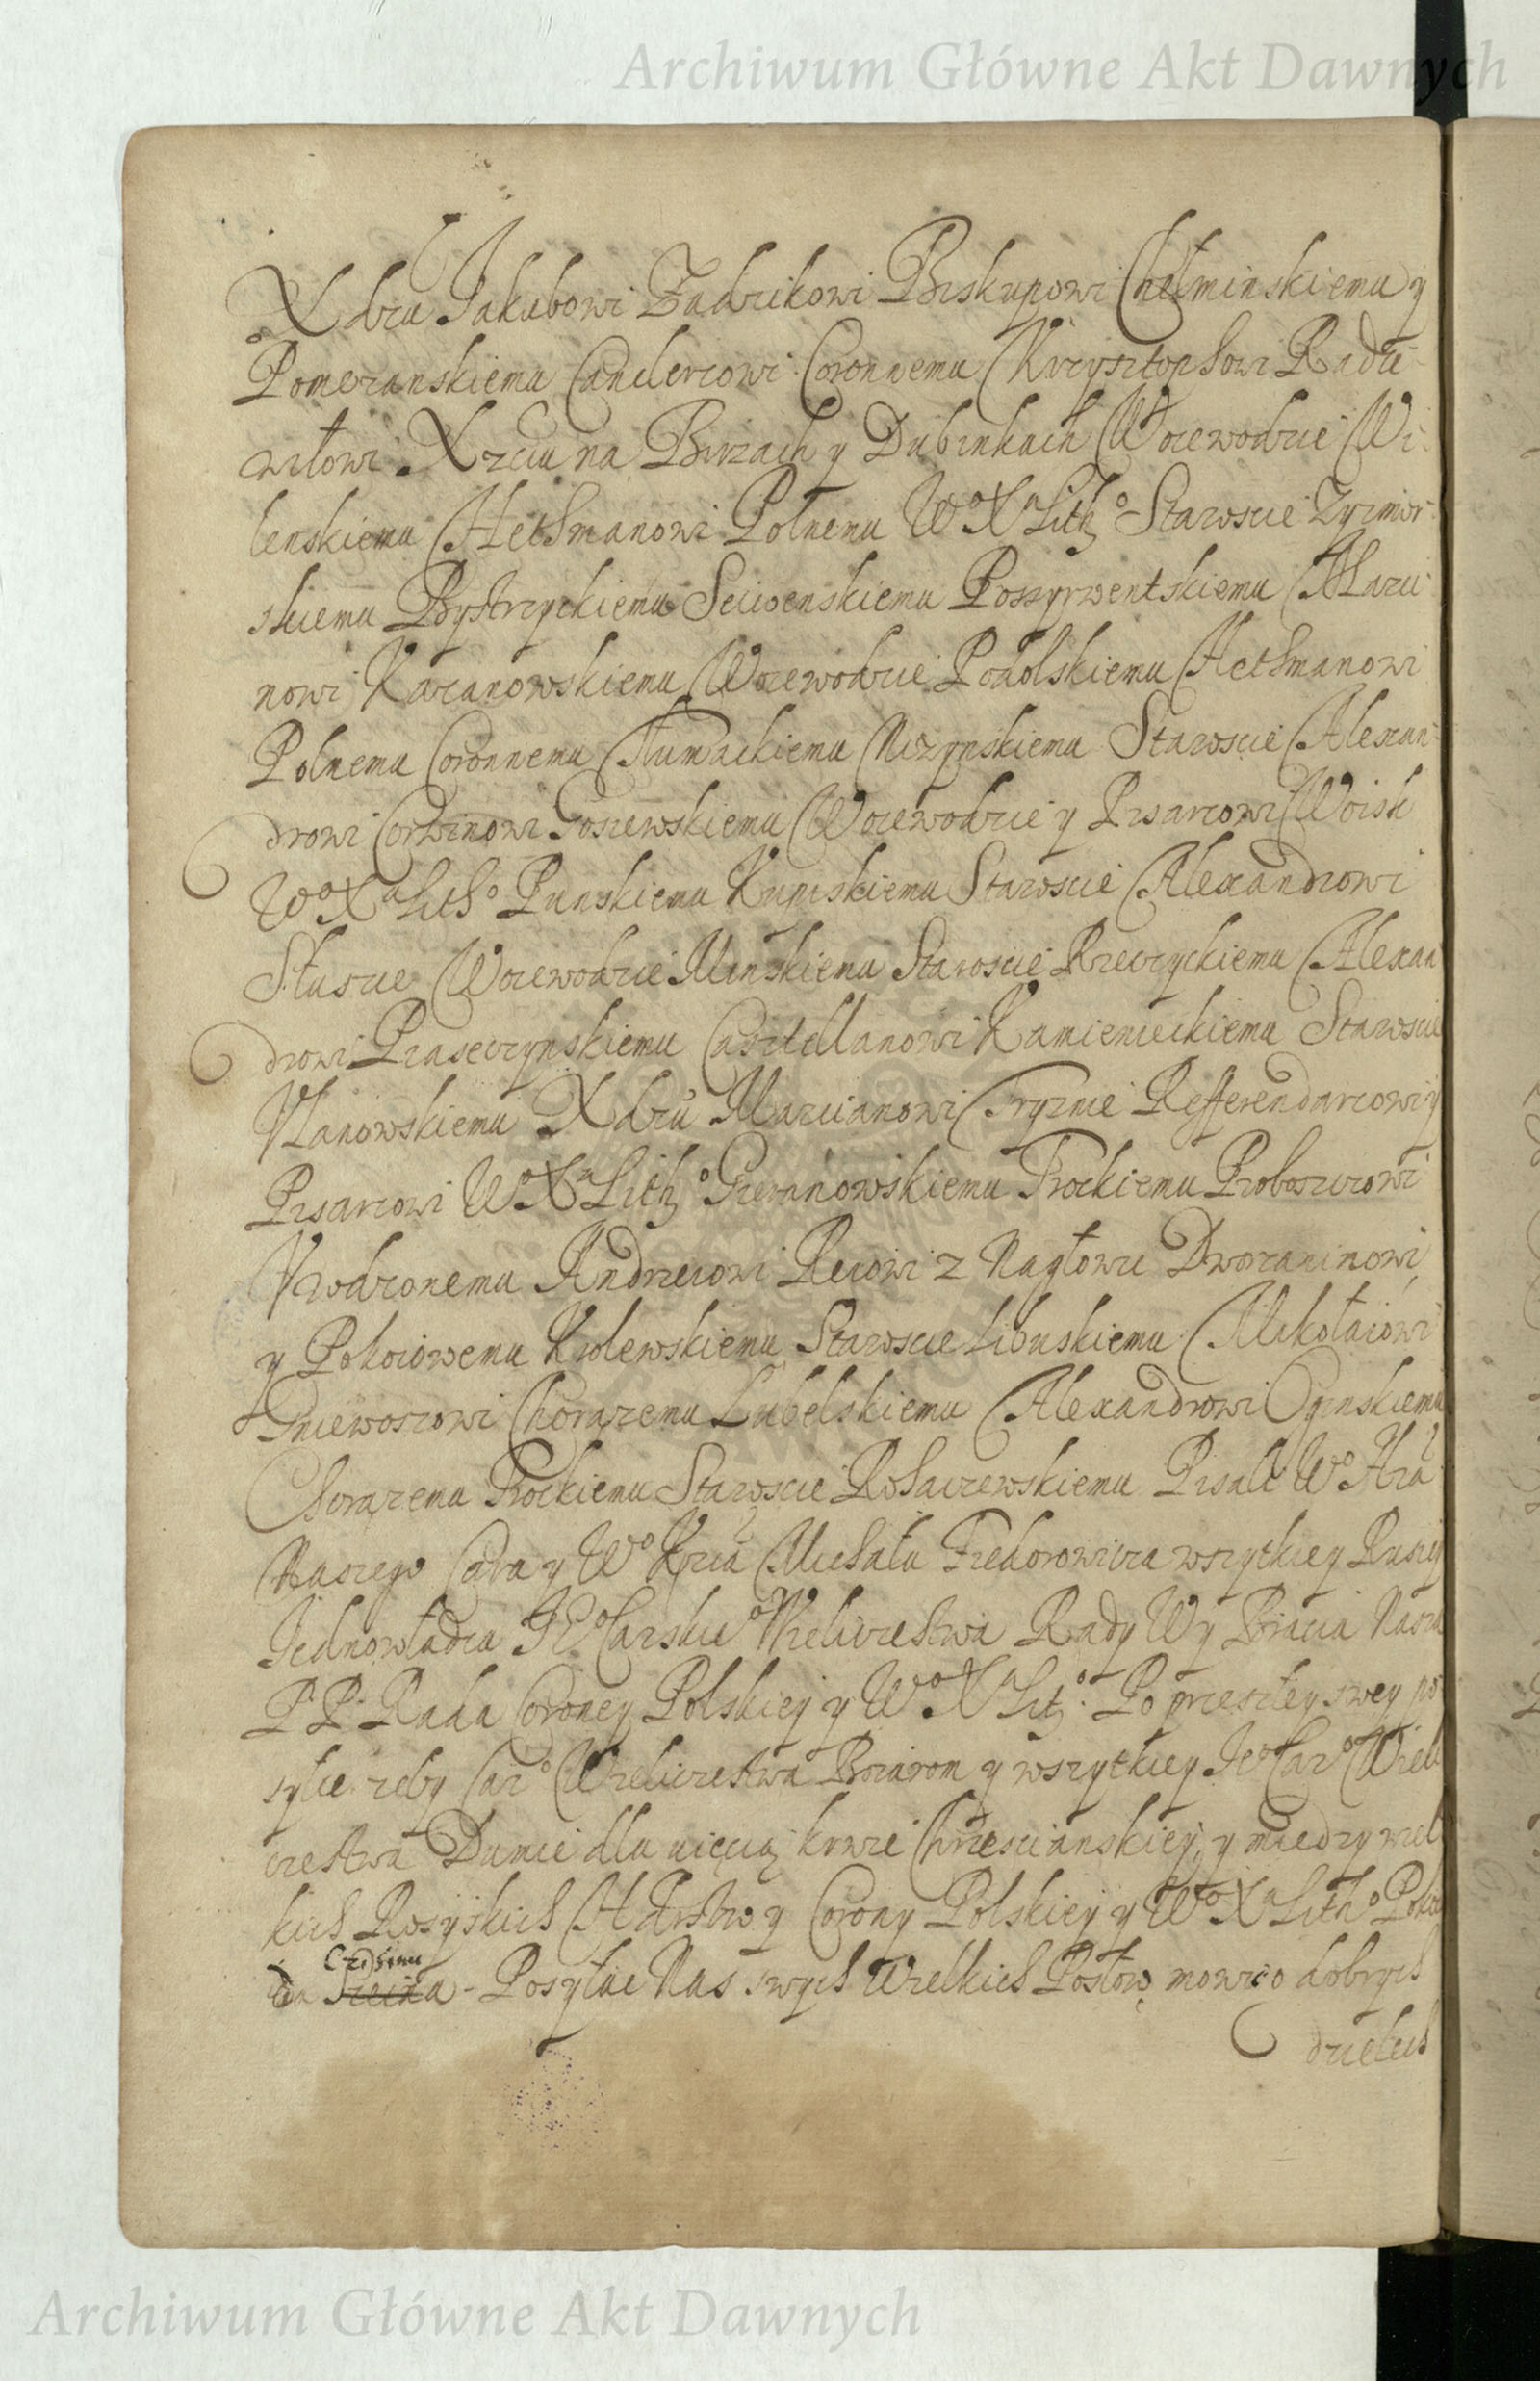 Archiwum Główne Akt Dawnych
Xdzu Jakubowi Zadzikowi Biskupowi Chełminskiemu y
Pomezanskiemu Canclerzowi Coronnemu Krzysztophowi Radzi
wiłowi Xzciu na Birzach y Dubinkach Woiewodzie Wi
lenskiemu Hethmanowi Polnemu Wo Xa Lith o Staroscie Zyzmor
skiemu Bystrzyckiemu Seiwenskiemu Poszyrwentskiemu Marci
nowi Kazanowskiemu Woiewodzie Podolskiemu Hethmanowi
Polnemu Coronnemu Tłumackiemu Nizynskiemu Staroscie Alexan
drowi Corwinowi Gosiewskiemu Woiewodzie y Pisarzowi Woisk
Wo Xa Lith o Punskiemu Kupiskiemu Staroscie Alexandrowi
Słuszce Woiewodzie Minskiemu Staroscie Rzeczyckiemu Alexan
drowi Piaseczynskiemu Casztellanowi Kamienieckiemu Staroscie
Vlanowskiemu Xdzu Marcianowi Tryznie Refferendarzowi y
Pisarzowi Wo Xa Lith o Gieranowskiemu Trockiemu Proboszczowi
Vrodzonemu Andrzeiowi Reiowi z Nagłowic Dworzaninowi
y Pokoiowemu Krolewskiemu Staroscie Libuskiemu Mikołaiowi
Gniewoszowi Chorązemu Lubelskiemu Alexandrowi Oginskiemu
Chorązemu Trockiemu Staroscie Rohaczewskiemu Pisali Wo Hra
Naszego Cara y Wo Kcia Michała Fiedorowicza wszytkiey Rusiy
Jednowładca Je o Carskie o Wieliczestwa Rady Wy Bracia Nasza
PP. Rada Coroney Polskiey y Wo Xa Lit o. Po przeszłey swey po
syłce zeby Car o Wieliczestwa Boiarom y wszytkiey Je o Car o Wieli
czestwa Dumie dla uięcia krwie Chrzescianskiey, y miedzy wiel
kich Rosyiskich Hdrstw y Corony Polskiey y Wo Xa Lith o Poko
da - Posyłac Nas swych Wielkich Posłow mowic o dobrych
dzielech
Archiwum Główne Akt Dawnych